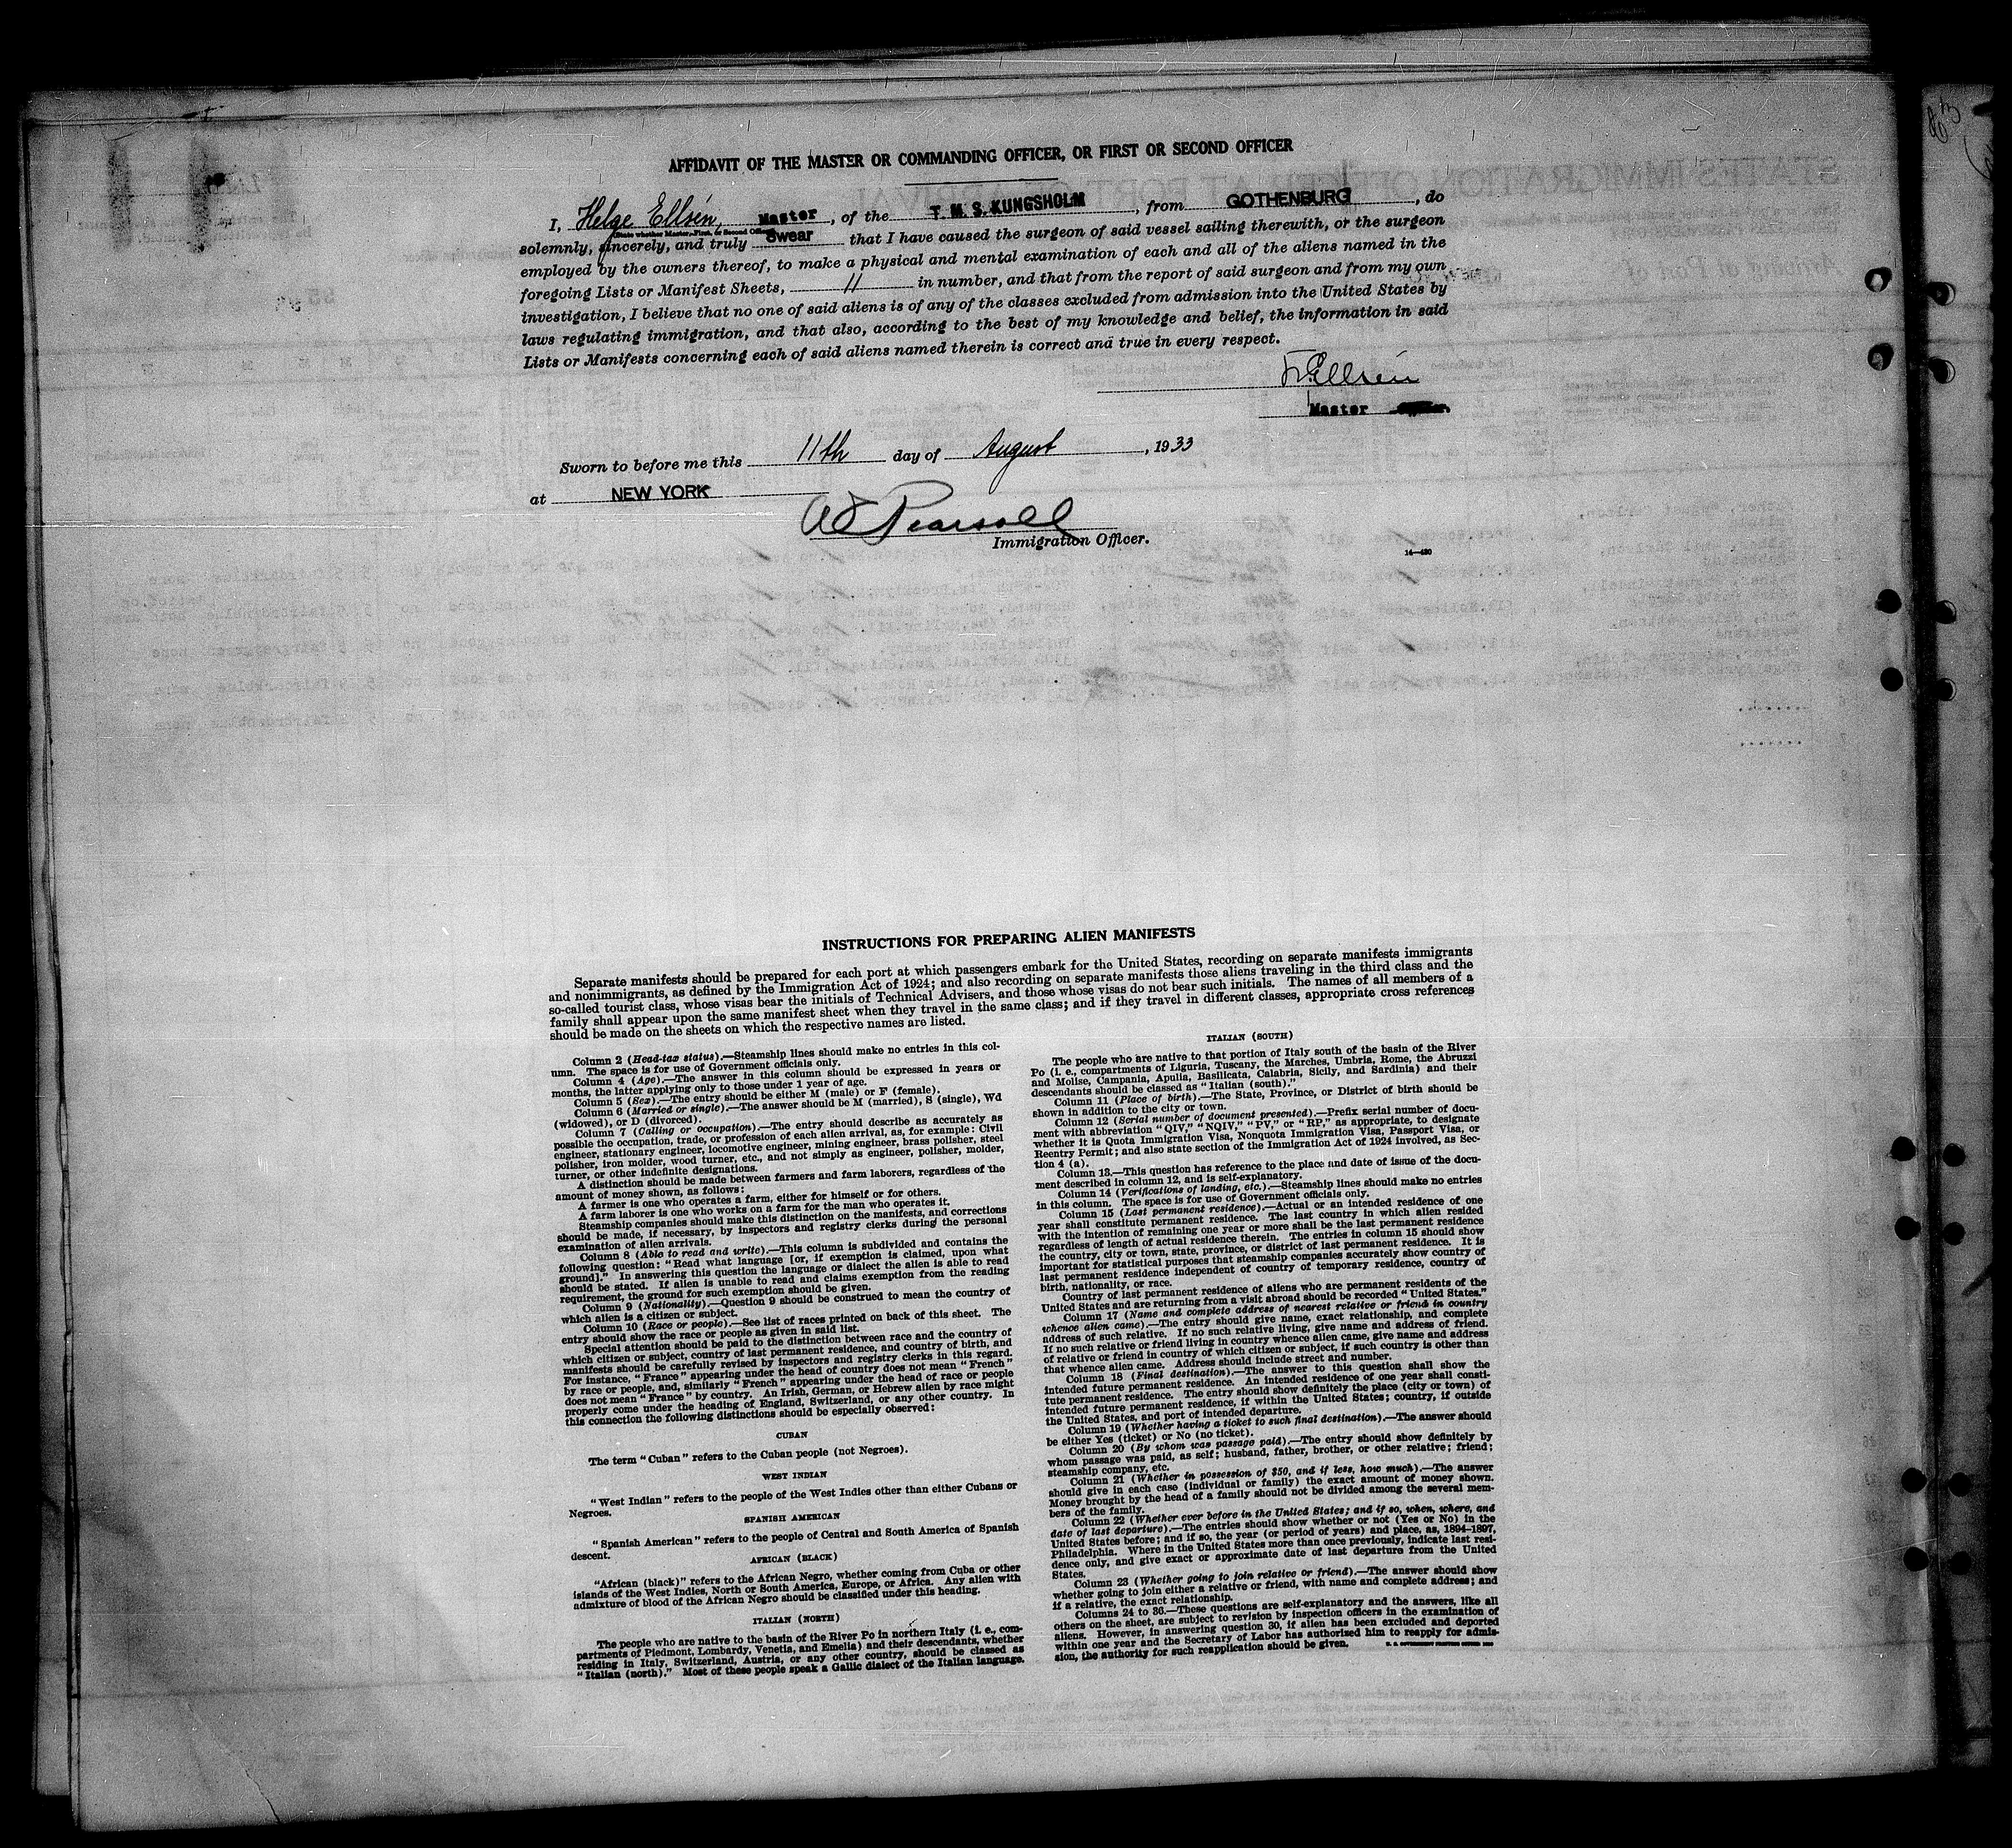 AFFIDAVIT OF THE MASTER OR COMMANDING OFFICER, OR FIRST OR SECOND OFFICER
I, Helge Ellsén, Master, of the T. M. S. KUNGSHOLM, from GOTHENBURG, do
(State whether Master, First, or Second Officer)
solemnly, sincerely, and truly Swear that I have caused the surgeon of said vessel sailing therewith, or the surgeon
employed by the owners thereof, to make a physical and mental examination of each and all of the aliens named in the
foregoing Lists or Manifest Sheets, 11 in number, and that from the report of said surgeon and from my own
investigation, I believe that no one of said aliens is of any of the classes excluded from admission into the United States by
laws regulating immigration, and that also, according to the best of my knowledge and belief, the information in said
Lists or Manifests concerning each of said aliens named therein is correct and true in every respect.
Ellsén
Master
Sworn to before me this 11th day of August, 1933
at NEW YORK
Pearsall
Immigration Officer.
14—430
INSTRUCTIONS FOR PREPARING ALIEN MANIFESTS
Separate manifests should be prepared for each port at which passengers embark for the United States, recording on separate manifests immigrants
and nonimmigrants, as defined by the Immigration Act of 1924; and also recording on separate manifests those aliens traveling in the third class and the
so-called tourist class, whose visas bear the initials of Technical Advisers, and those whose visas do not bear such initials. The names of all members of a
family shall appear upon the same manifest sheet when they travel in the same class; and if they travel in different classes, appropriate cross references
should be made on the sheets on which the respective names are listed.
Column 2 (Head-tax status).—Steamship lines should make no entries in this col-
umn. The space is for use of Government officials only.
Column 4 (Age).—The answer in this column should be expressed in years or
months, the latter applying only to those under 1 year of age.
Column 5 (Sex).—The entry should be either M (male) or F (female).
Column 6 (Married or single).—The answer should be M (married), S (single), Wd
(widowed), or D (divorced).
Column 7 (Calling or occupation).—The entry should describe as accurately as
possible the occupation, trade, or profession of each alien arrival, as, for example: Civil
engineer, stationary engineer, locomotive engineer, mining engineer, brass polisher, steel
polisher, iron molder, wood turner, etc., and not simply as engineer, polisher, molder,
turner, or other indefinite designations.
A distinction should be made between farmers and farm laborers, regardless of the
amount of money shown, as follows:
A farmer is one who operates a farm, either for himself or for others.
A farm laborer is one who works on a farm for the man who operates it.
Steamship companies should make this distinction on the manifests, and corrections
should be made, if necessary, by inspectors and registry clerks during the personal
examination of alien arrivals.
Column 8 (Able to read and write).—This column is subdivided and contains the
following question: “Read what language [or, if exemption is claimed, upon what
ground].” In answering this question the language or dialect the alien is able to read
should be stated. If alien is unable to read and claims exemption from the reading
requirement, the ground for such exemption should be given.
Column 9 (Nationality).—Question 9 should be construed to mean the country of
which alien is a citizen or subject.
Column 10 (Race or people).—See list of races printed on back of this sheet. The
entry should show the race or people as given in said list.
Special attention should be paid to the distinction between race and the country of
which citizen or subject, country of last permanent residence, and country of birth, and
manifests should be carefully revised by inspectors and registry clerks in this regard.
For instance, “France” appearing under the head of country does not mean “French”
by race or people, and, similarly “French” appearing under the head of race or people
does not mean “France” by country. An Irish, German, or Hebrew alien by race might
properly come under the heading of England, Switzerland, or any other country. In
this connection the following distinctions should be especially observed:
CUBAN
The term “Cuban” refers to the Cuban people (not Negroes).
WEST INDIAN
“West Indian” refers to the people of the West Indies other than either Cubans or
Negroes.
SPANISH AMERICAN
“Spanish American” refers to the people of Central and South America of Spanish
descent.
AFRICAN (BLACK)
“African (black)” refers to the African Negro, whether coming from Cuba or other
islands of the West Indies, North or South America, Europe, or Africa. Any alien with
admixture of blood of the African Negro should be classified under this heading.
ITALIAN (NORTH)
The people who are native to the basin of the River Po in northern Italy (i. e., com-
partments of Piedmont, Lombardy, Venetia, and Emelia) and their descendants, whether
residing in Italy, Switzerland, Austria, or any other country, should be classed as
“Italian (north).” Most of these people speak a Gallic dialect of the Italian language.
ITALIAN (SOUTH)
The people who are native to that portion of Italy south of the basin of the River
Po (i. e., compartments of Liguria, Tuscany, the Marches, Umbria, Rome, the Abruzzi
and Molise, Campania, Apulia, Basilicata, Calabria, Sicily, and Sardinia) and their
descendants should be classed as “Italian (south).”
Column 11 (Place of birth).—The State, Province, or District of birth should be
shown in addition to the city or town.
Column 12 (Serial number of document presented).—Prefix serial number of docu-
ment with abbreviation “QIV,” “NQIV,” “PV,” or “RP,” as appropriate, to designate
whether it is Quota Immigration Visa, Nonquota Immigration Visa, Passport Visa, or
Reentry Permit; and also state section of the Immigration Act of 1924 involved, as Sec-
tion 4 (a).
Column 13.—This question has reference to the place and date of issue of the docu-
ment described in column 12, and is self-explanatory.
Column 14 (Verifications of landing, etc.).—Steamship lines should make no entries
in this column. The space is for use of Government officials only.
Column 15 (Last permanent residence).—Actual or an intended residence of one
year shall constitute permanent residence. The last country in which alien resided
with the intention of remaining one year or more shall be the last permanent residence
regardless of length of actual residence therein. The entries in column 15 should show
the country, city or town, state, province, or district of last permanent residence. It is
important for statistical purposes that steamship companies accurately show country of
last permanent residence independent of country of temporary residence, country of
birth, nationality, or race.
Country of last permanent residence of aliens who are permanent residents of the
United States and are returning from a visit abroad should be recorded “United States.”
Column 17 (Name and complete address of nearest relative or friend in country
whence alien came).—The entry should give name, exact relationship, and complete
address of such relative. If no such relative living, give name and address of friend.
If no such relative or friend living in country whence alien came, give name and address
of relative or friend in country of which citizen or subject, if such country is other than
that whence alien came. Address should include street and number.
Column 18 (Final destination).—The answer to this question shall show the
intended future permanent residence. An intended residence of one year shall consti-
tute permanent residence. The entry should show definitely the place (city or town) of
intended future permanent residence, if within the United States; country, if outside
the United States, and port of intended departure.
Column 19 (Whether having a ticket to such final destination).—The answer should
be either Yes (ticket) or No (no ticket).
Column 20 (By whom was passage paid).—The entry should show definitely by
whom passage was paid, as self; husband, father, brother, or other relative; friend;
steamship company, etc.
Column 21 (Whether in possession of $50, and if less, how much).—The answer
should give in each case (individual or family) the exact amount of money shown.
Money brought by the head of a family should not be divided among the several mem-
bers of the family.
Column 22 (Whether ever before in the United States; and if so, when, where, and
date of last departure).—The entries should show whether or not (Yes or No) in the
United States before; and if so, the year (or period of years) and place, as, 1894–1897,
Philadelphia. Where in the United States more than once previously, indicate last resi-
dence only, and give exact or approximate date of last departure from the United
States.
Column 23 (Whether going to join relative or friend).—The answer should show
whether going to join either a relative or friend, with name and complete address; and
if a relative, the exact relationship.
Columns 24 to 36.—These questions are self-explanatory and the answers, like all
others on the sheet, are subject to revision by inspection officers in the examination of
aliens. However, in answering question 30, if alien has been excluded and deported
within one year and the Secretary of Labor has authorized him to reapply for admis-
sion, the authority for such reapplication should be given.